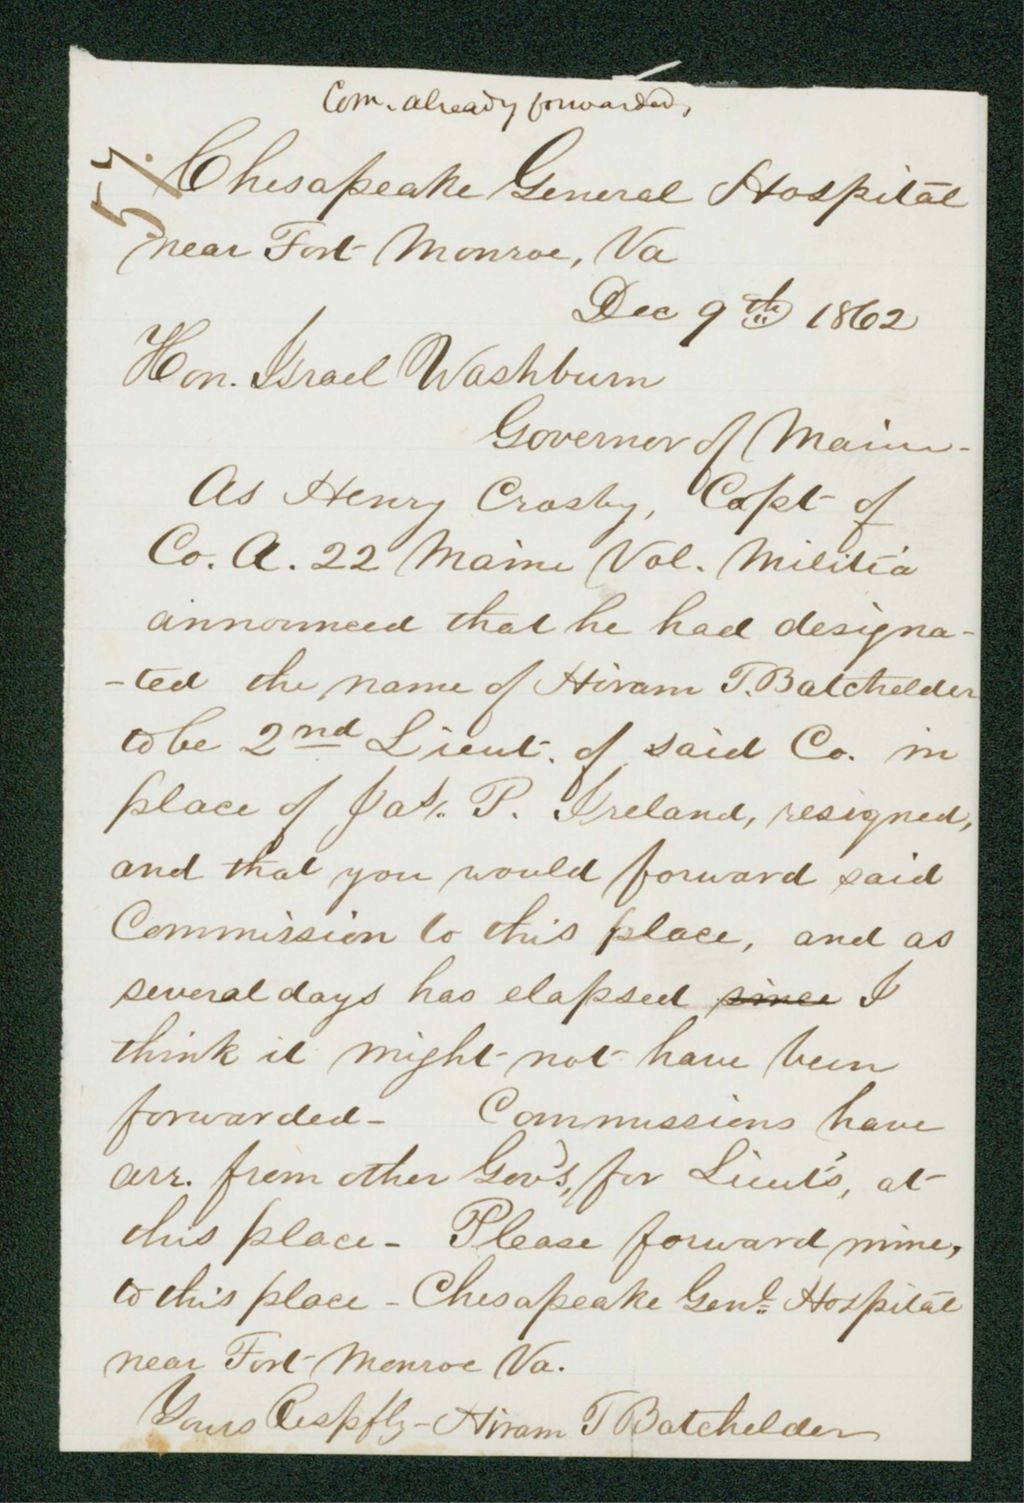 Com. already forwarded,
57.
Chesapeake General Hospital
near Fort Monroe, Va
Dec 9th 1862
Hon. Israel Washburn
Governor of Maine-
As Henry Crosby, Capt of
Co. A. 22 Maine Vol. Militia
announced that he had designa-
-ted the name of Hiram T. Batchelder
to be 2nd Lieut. of said Co. in
place of Jas. P. Ireland, resigned,
and that you would forward said
Commission to this place, and as
several days has elapsed since I
think it might not have been
forwarded- Commissions have
arr. from other Gov's, for Lieut's, at
this place - Please forward mine,
to this place - Chesapeake Genl. Hospital
near Fort Monroe Va.
Yours Respfly - Hiram T Batchelder